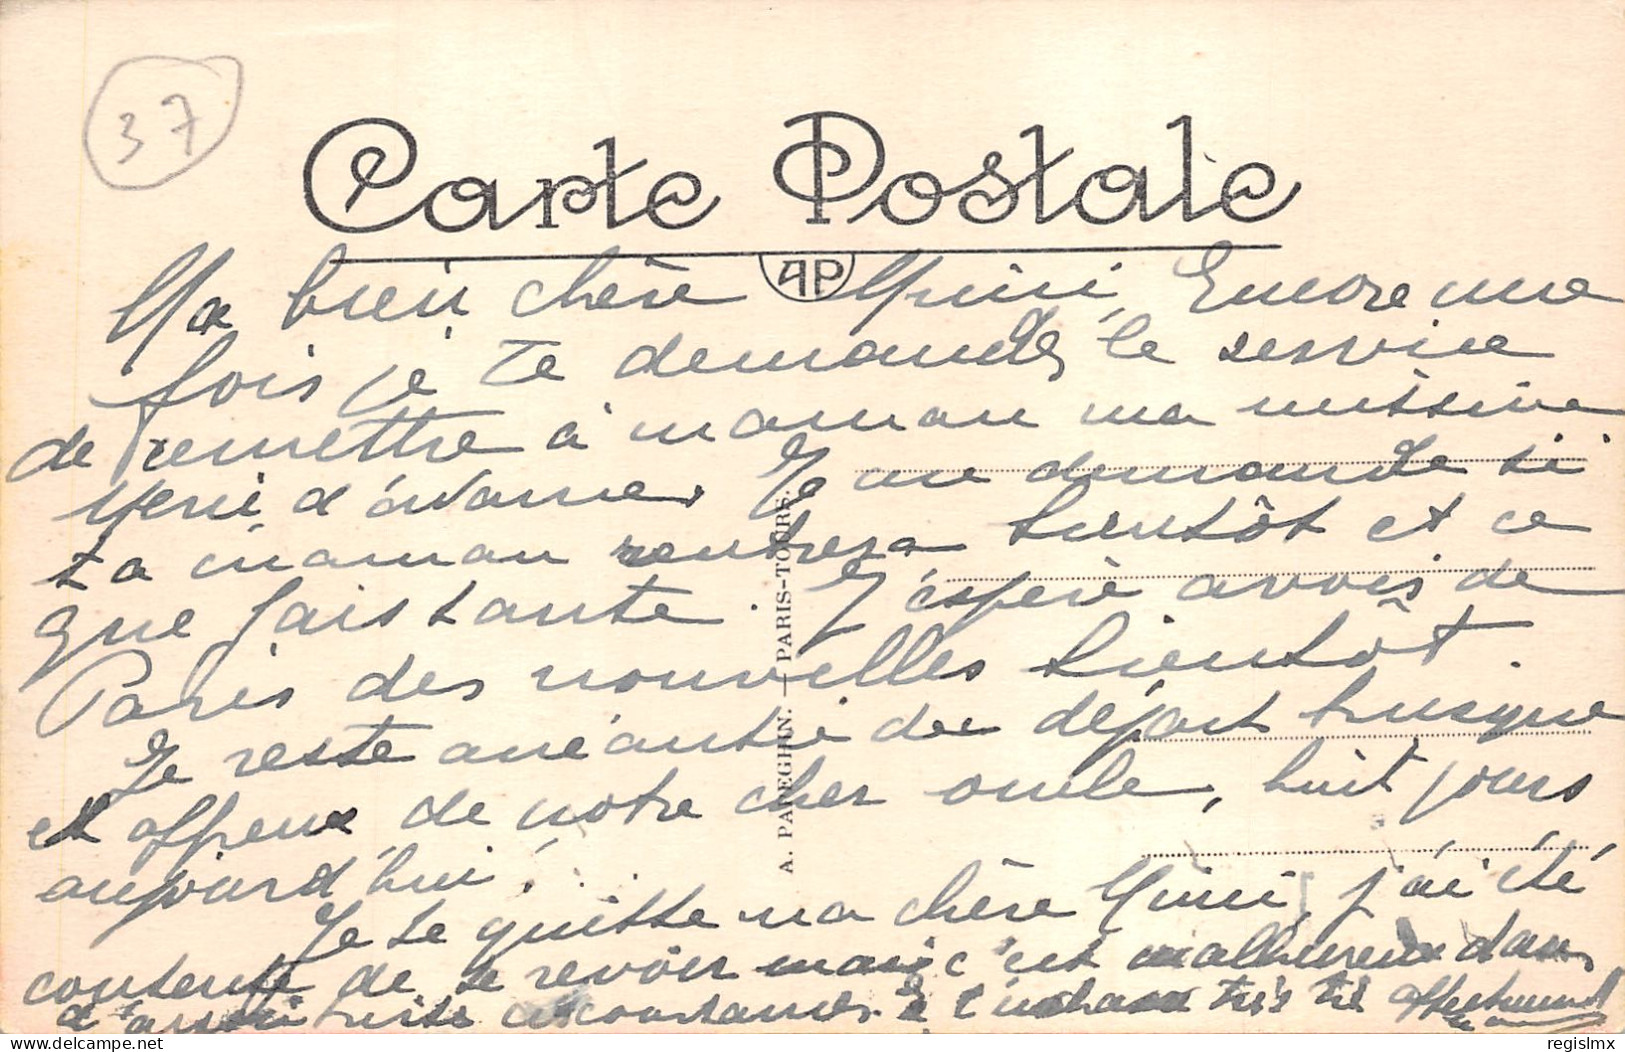 37
Carte Postale
AP
Ma bien chère Mimi, Encore une
fois je te demande le service
de remettre à maman ma missive
Merci d'avance. Je me demande si
ta maman rentrera bientôt et ce
que fais tante. J'espère avoir de
Paris des nouvelles bientôt.
Je reste anéantie du départ brusque
et affreux de notre cher oncle, huit jours
aujourd'hui!
Je te quitte ma chère Mimi, j'ai été
contente de te revoir mais c'est malheureux dans
d'aussi tristes circonstances. Je t'embrasse très très affectueusement
A. PAPEGHIN. — PARIS-TOURS.
delcampe.net
regislmx